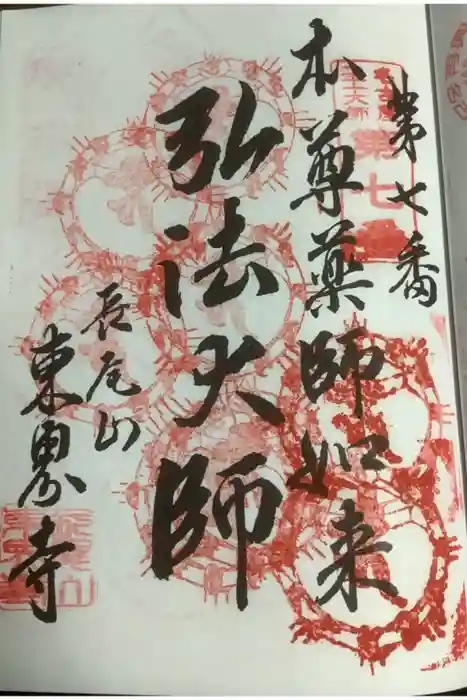 第七番
本尊薬師如来
弘法大師
長尾山
東界寺